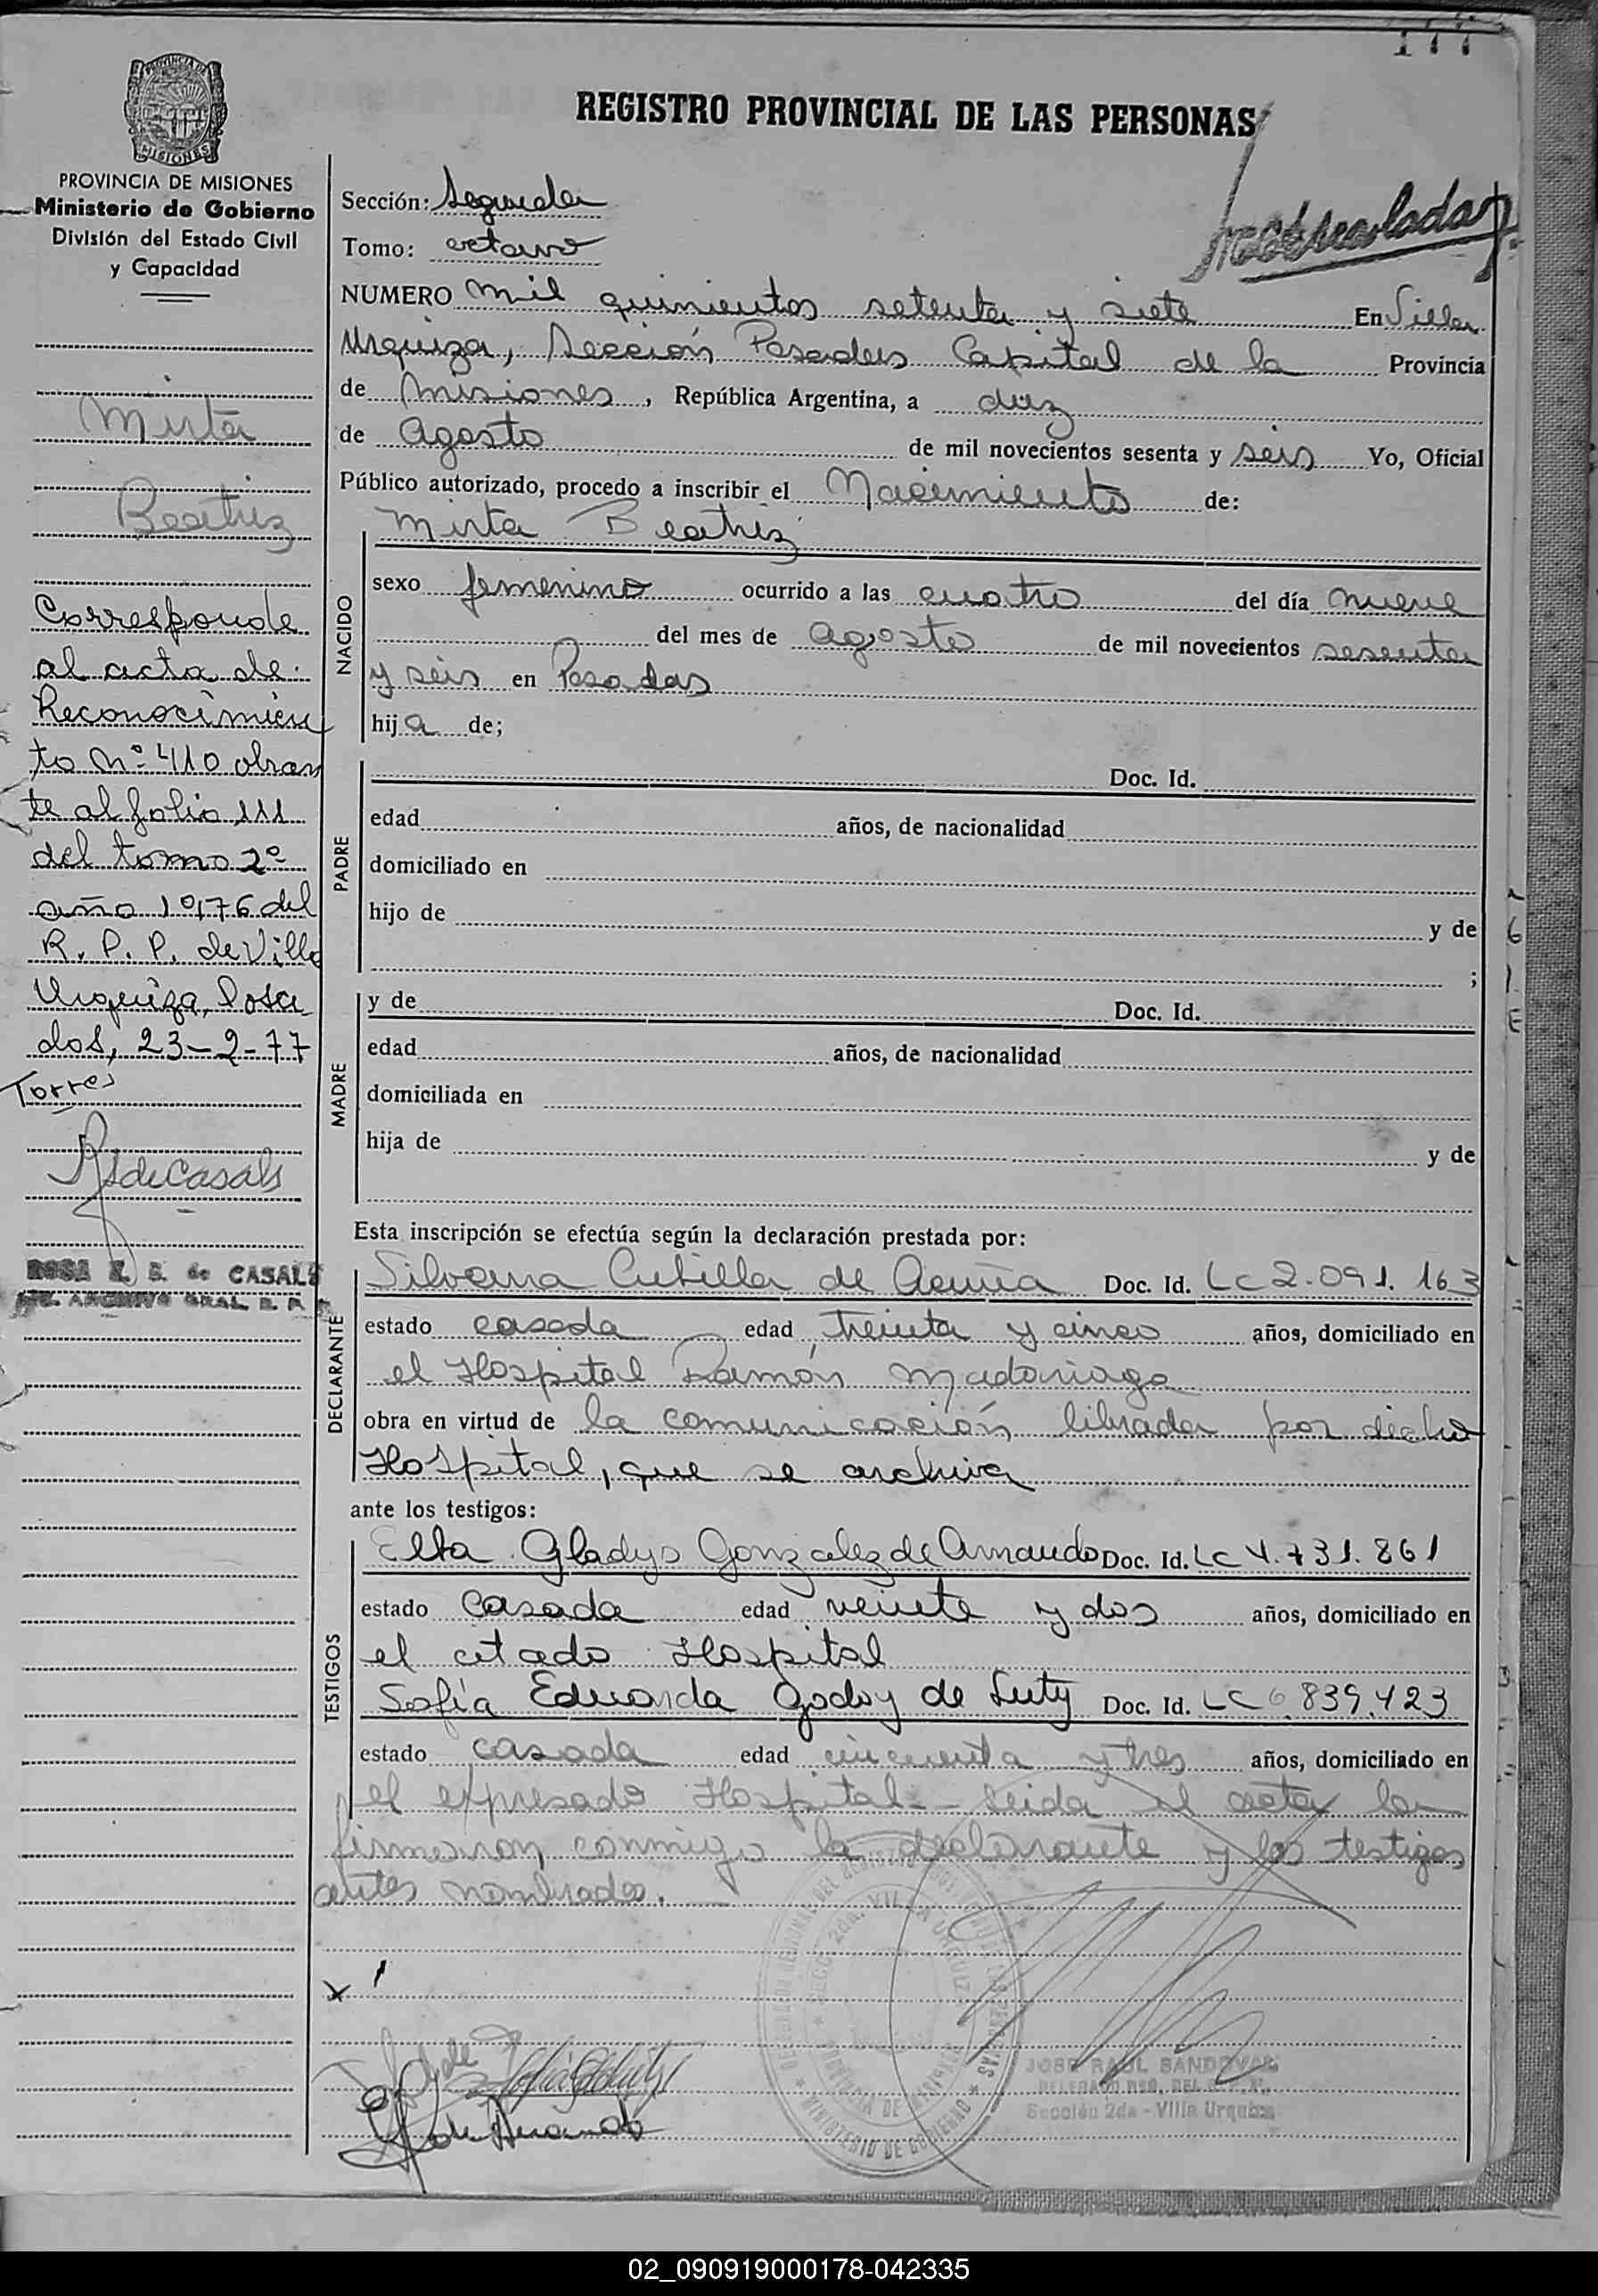 177
PROVINCIA DE
MISIONES
PROVINCIA DE MISIONES
Ministerio de Gobierno
División del Estado Civil
y Capacidad
Mirta
Beatriz
Corresponde
al acta de
Reconocimien
to Nº 410 obran
te al folio 111
del tomo 2º
año 1976 del
R. P. P. de Villa
Urquiza, Posa
das, 23-2-77
Torres
R S de Casals
ROSA E. S. de CASALS
ARCHIVO GRAL. R. P.
REGISTRO PROVINCIAL DE LAS PERSONAS
Sección: Segunda
Tomo: octavo
NUMERO mil quinientos setenta y siete En Villa
Urquiza, Sección Posadas Capital de la Provincia
de Misiones, República Argentina, a diez
de Agosto de mil novecientos sesenta y seis Yo, Oficial
Público autorizado, procedo a inscribir el Nacimiento de:
NACIDO
Mirta Beatriz
sexo femenino ocurrido a las cuatro del día nueve
del mes de agosto de mil novecientos sesenta
y seis en Posadas
hija de;
PADRE
Doc. Id.
edad años, de nacionalidad
domiciliado en
hijo de y de
;
MADRE
y de Doc. Id.
edad años, de nacionalidad
domiciliada en
hija de y de
Esta inscripción se efectúa según la declaración prestada por:
DECLARANTE
Silveria Cubilla de Acuña Doc. Id. LC 2.091.163
estado casada edad treinta y cinco años, domiciliado en
el Hospital Ramón Madariaga
obra en virtud de la comunicación librada por dicho
Hospital, que se archiva
ante los testigos:
TESTIGOS
Elba Gladys Gonzalez de Amando Doc. Id. LC 4.731.861
estado casada edad veinte y dos años, domiciliado en
el citado Hospital
Sofía Eduarda Godoy de Luty Doc. Id. LC 6.839.423
estado casada edad cincuenta y tres años, domiciliado en
el expresado Hospital - Leida el acta la
firmaron conmigo la declarante y los testigos
antes nombrados.
JOSE RAUL SANDOVAL
Sección 2da - Villa Urquiza
MINISTERIO DE GOBIERNO
02_090919000178-042335